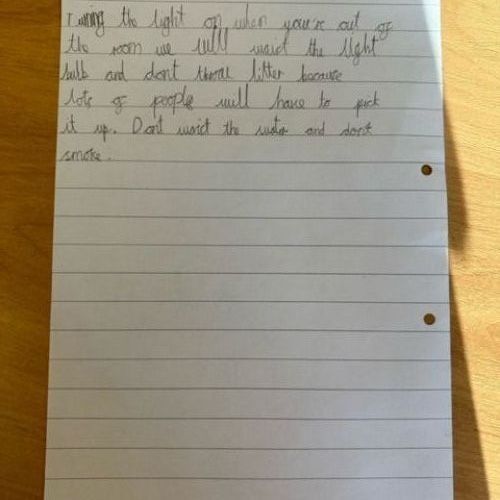 Turning the light on when you're out of
the room we will waist the light
bulb and dont throw litter because
lots of people will have to pick
it up. Don't waist the water and dont
smoke.